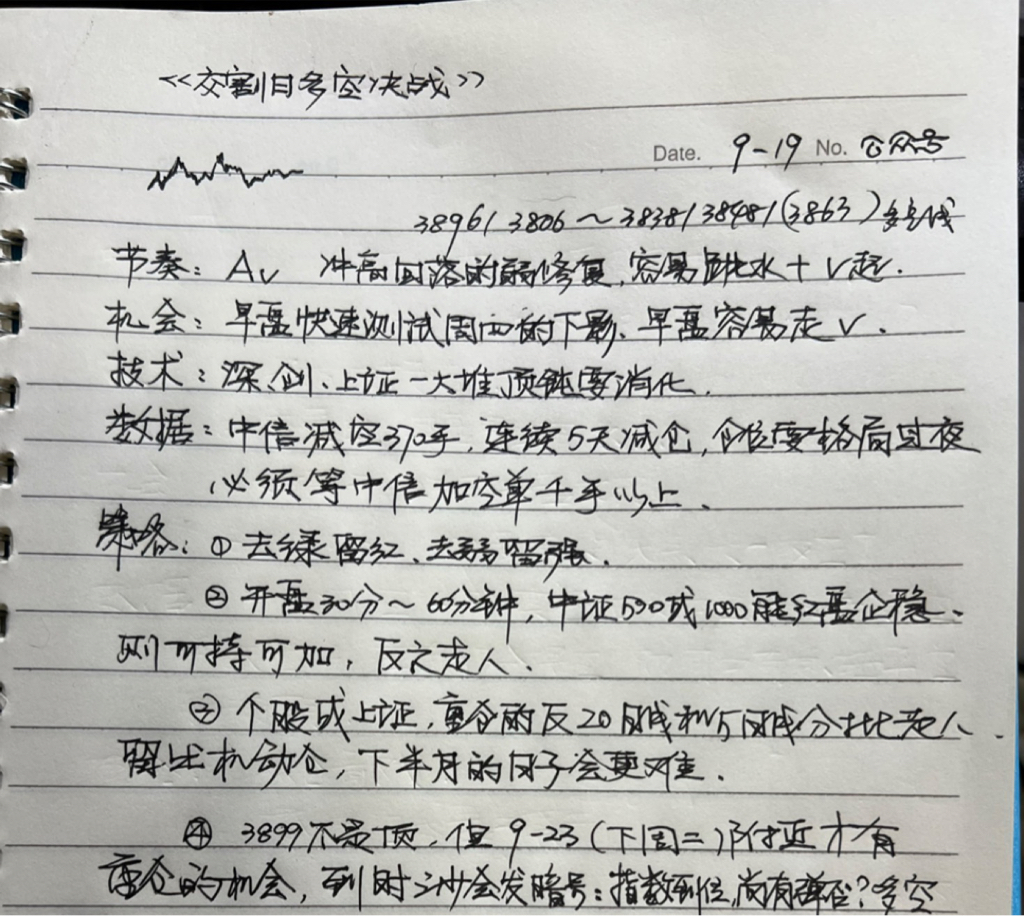 <<交割日多空决战>>
Date. 9-19 No. 公众号
3896/3806~3838/3848/(3863)多空线
节奏: Av 冲高回落的弱修复,容易跳水+V起.
机会: 早盘快速测试周四的下影、早盘容易走V.
技术: 深、创、上证一大堆顶钝要消化.
数据: 中信减空370手,连续5天减仓,仓位要格局过夜
必须等中信加空单千手以上.
策略: ①去绿留红、去弱留强.
②开盘30分~60分钟,中证500或1000能红盘企稳.
则可持可加,反之走人.
③个股或上证,重仓的反20日减和5日减分批走人.
留出机动仓,下半月的日子会更难.
④3899不是顶,但9-23(下周二)附近才有
重仓的机会,到时沙沙会发暗号:指数到位,尚有弹否?多空